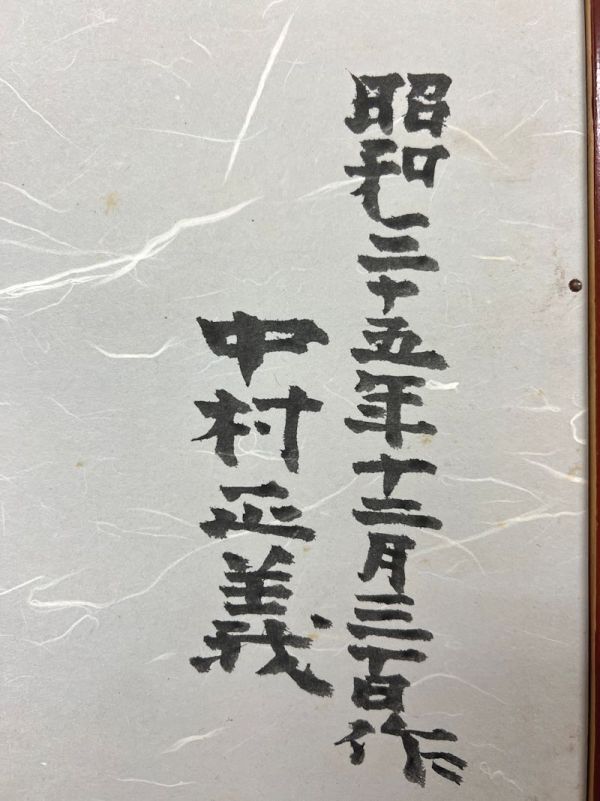 昭和三十五年十二月三十日作
中村正義